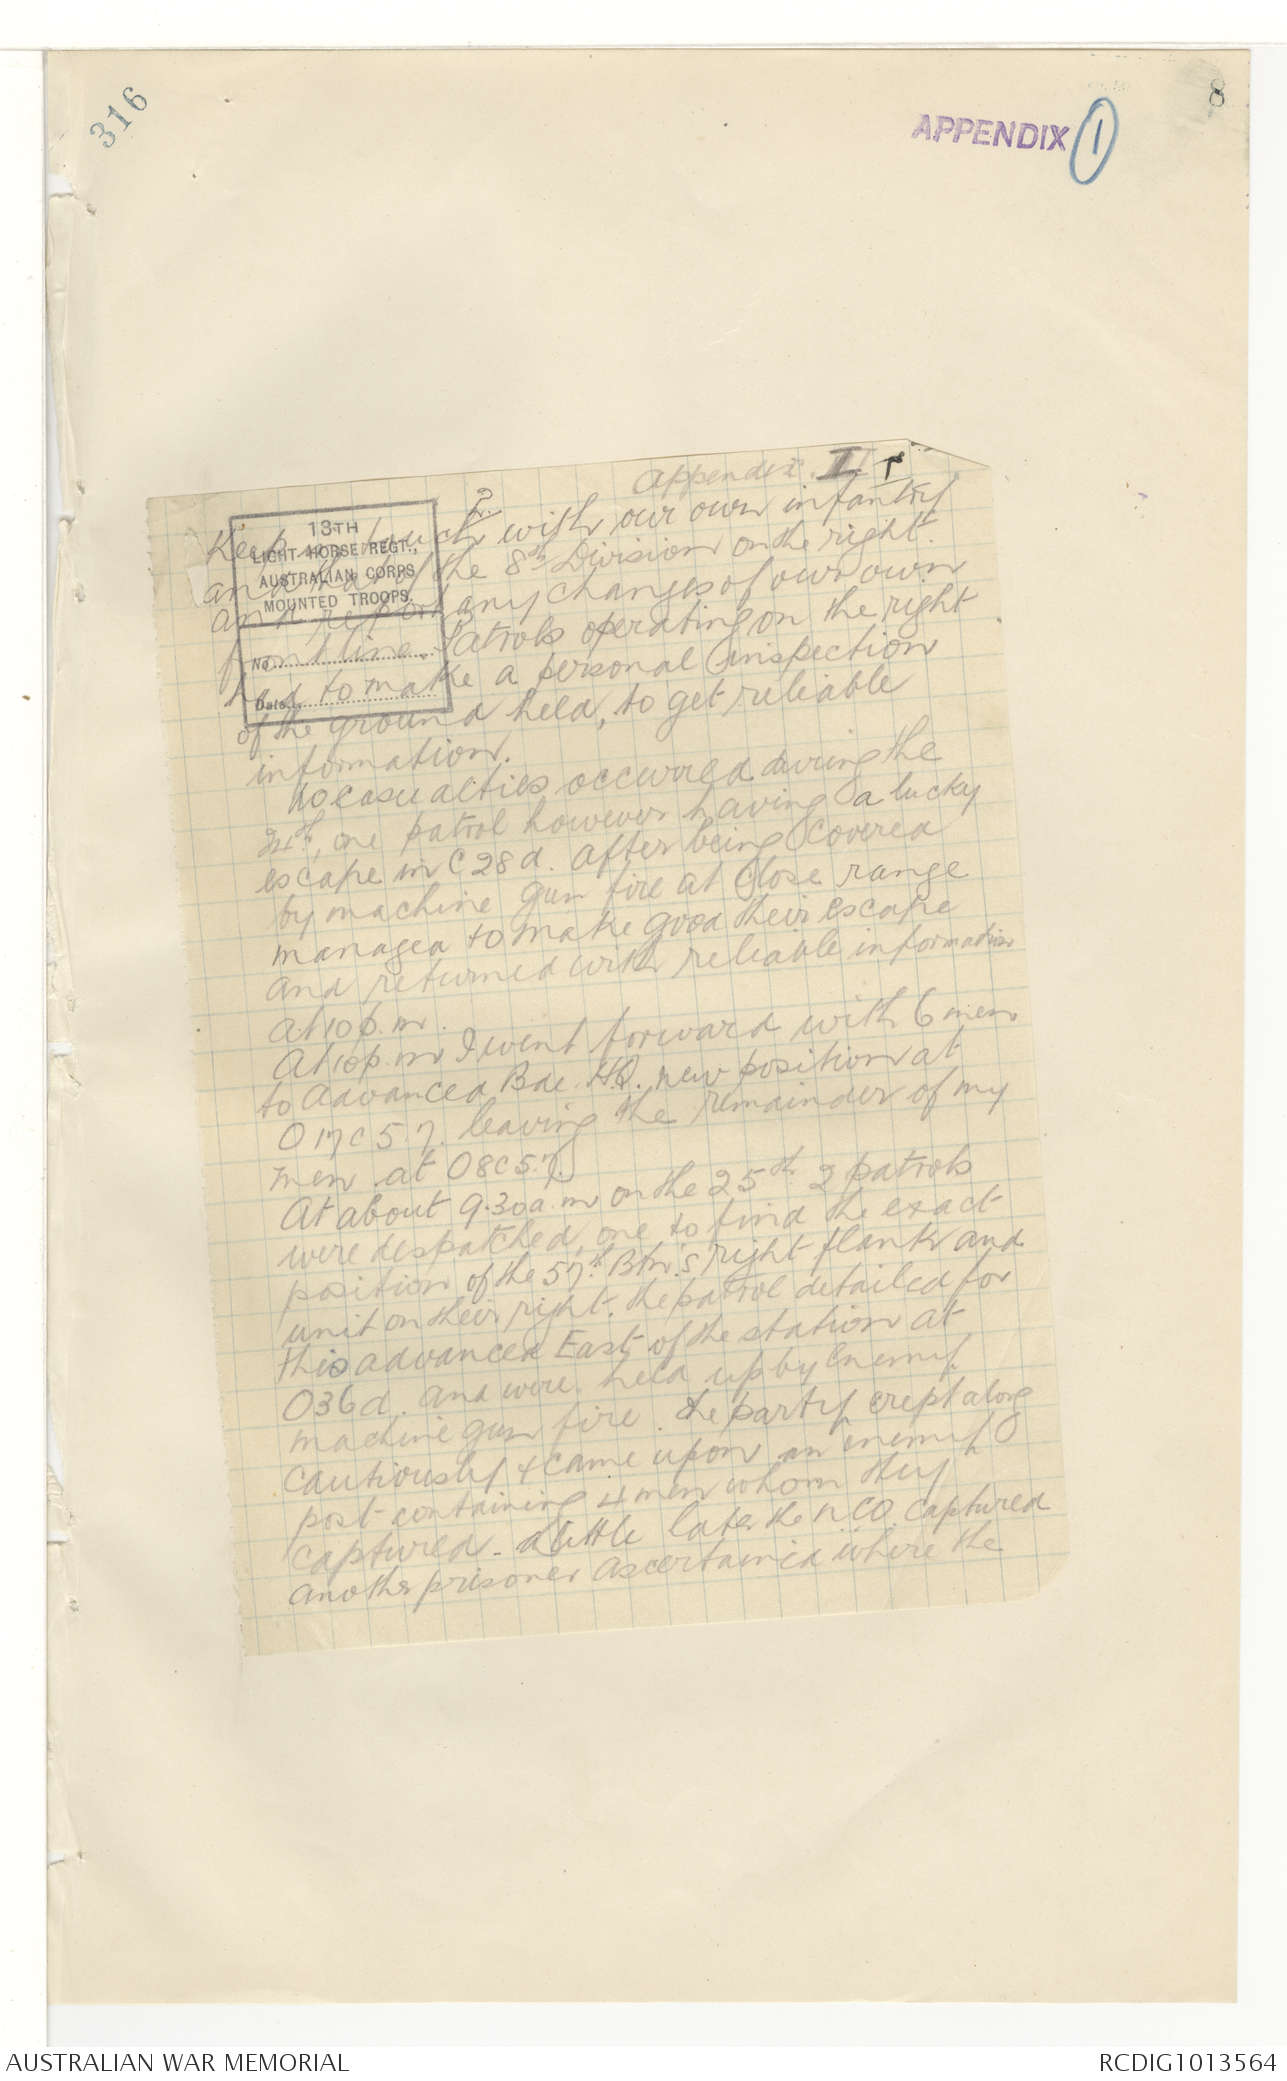 316
8
APPENDIX 1
Appendix II
2.
13TH
LIGHT HORSE REGT.,
AUSTRALIAN CORPS
MOUNTED TROOPS.
No
Date
Keep in touch with our own infantry
and that of the 8th Division on the right.
And report any changes of our own
front line. Patrols operating on the right
had to make a personal inspection
of the ground held, to get reliable
information.
No casualties occurred during the
24th, one patrol however having a lucky
escape in C28d. After being covered
by machine gun fire at close range
managed to make good their escape
and returned with reliable information
at 10 p.m.
At 10 p.m. I went forward with 6 men
to Advanced Bde. H.Q. new position at
O17C5.7. leaving the remainder of my
men at O8C5.7.
At about 9.30 a.m on the 25th 2 patrols
were despatched, one to find the exact
position of the 57th Btn's right flank and
unit on their right. The patrol detailed for
this advanced East of the station at
O36d. and were held up by Enemy
machine gun fire. The party crept along
cautiously & came upon an enemy
post containing 4 men whom they
captured. a little later the NCO. captured
another prisoner ascertained where the
AUSTRALIAN WAR MEMORIAL
RCDIG1013564